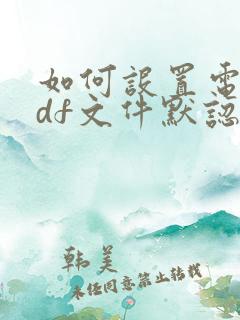 如何設置電
df文件默認
韩美
未经同意禁止转载